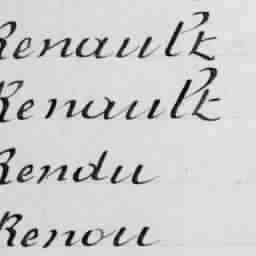 Renault
Renault
Rendu
Renou